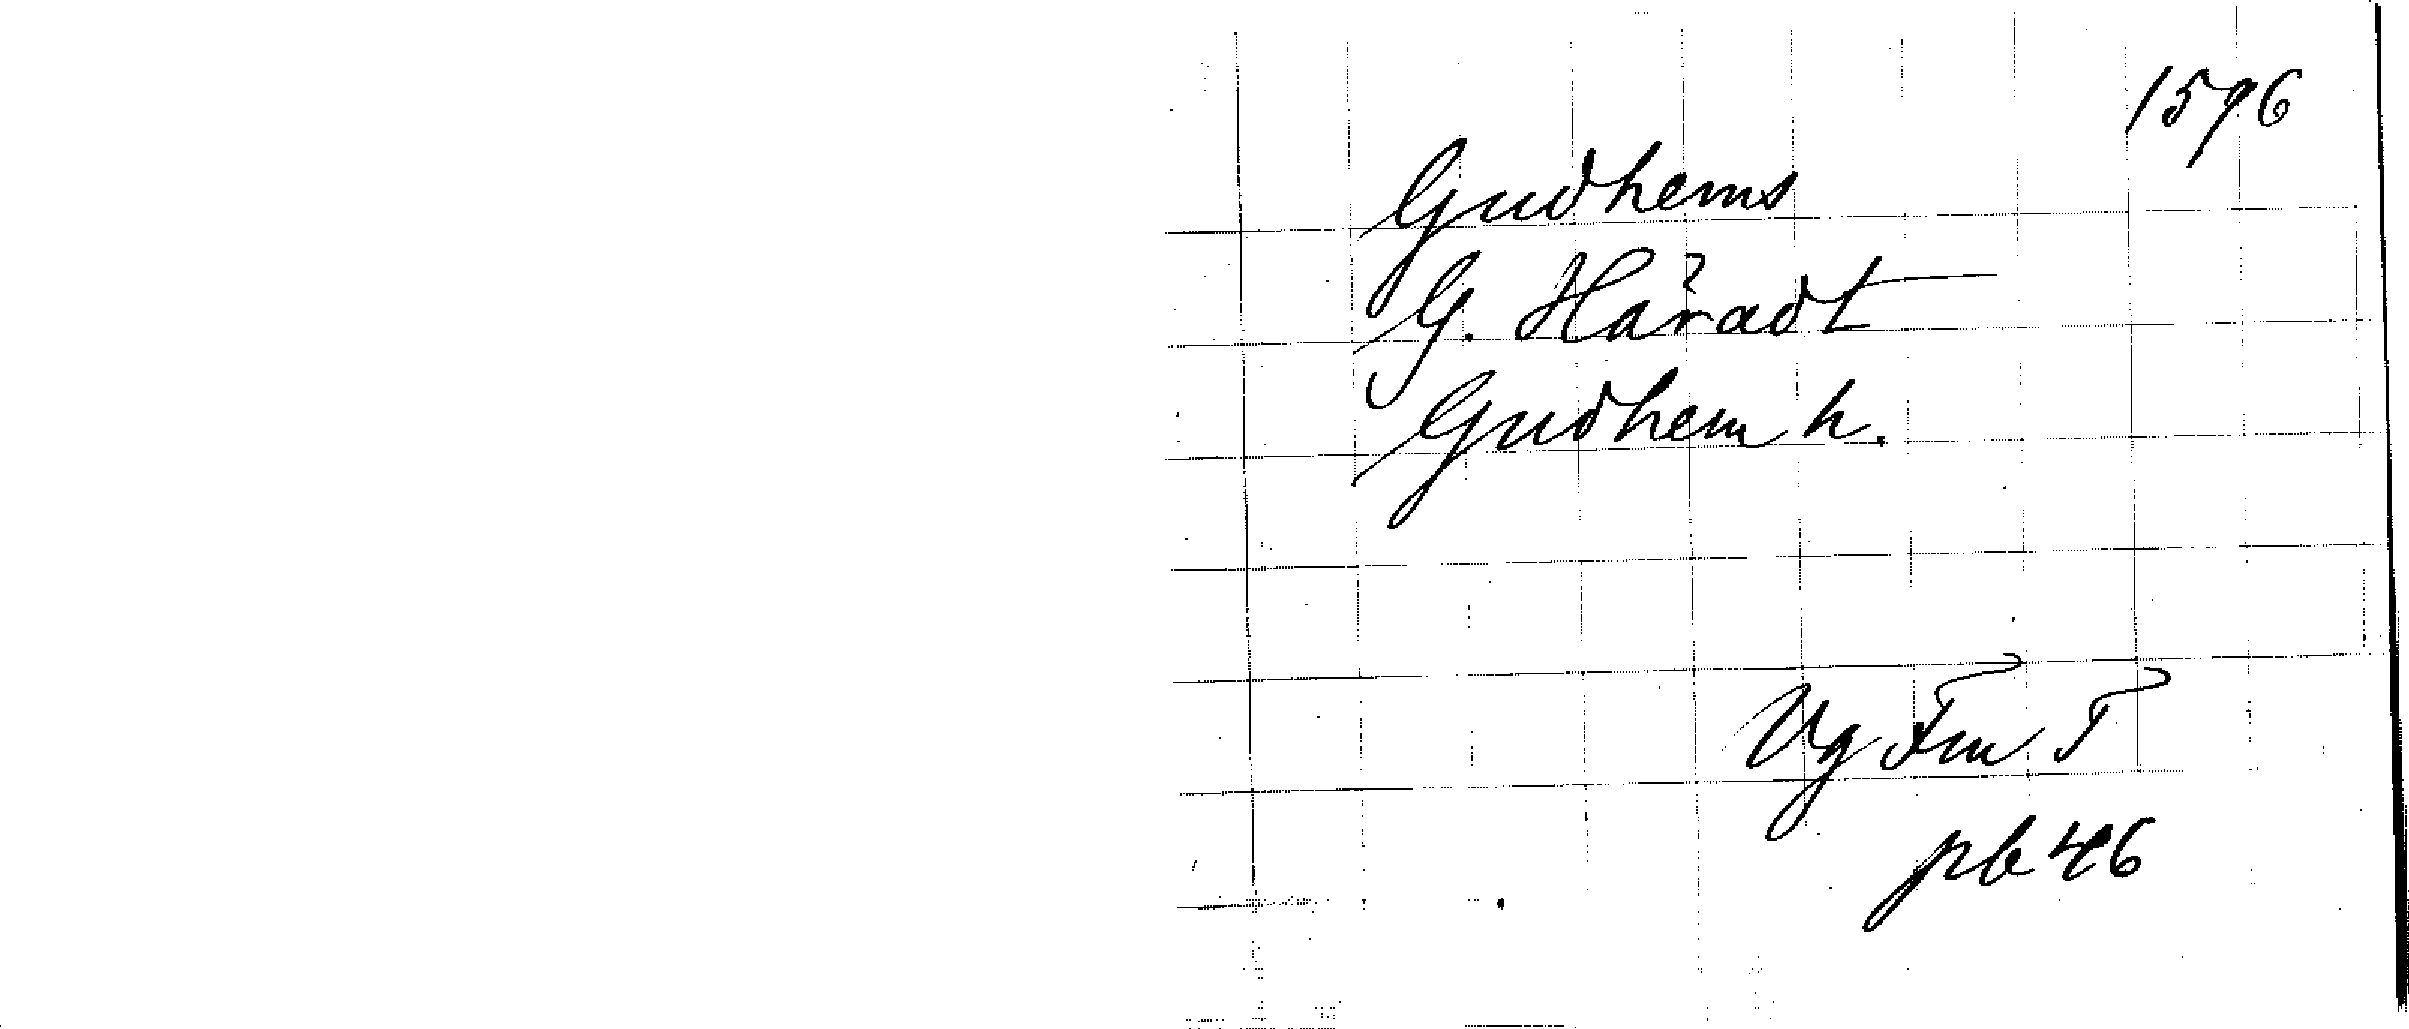 1596
Gudhems
G. Häradt
Gudhem h.
Vg Fm T
pb 46